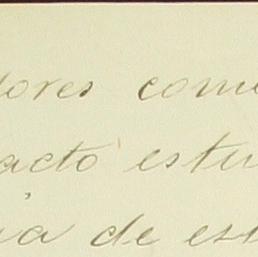 dores como
acto estu
ia de est